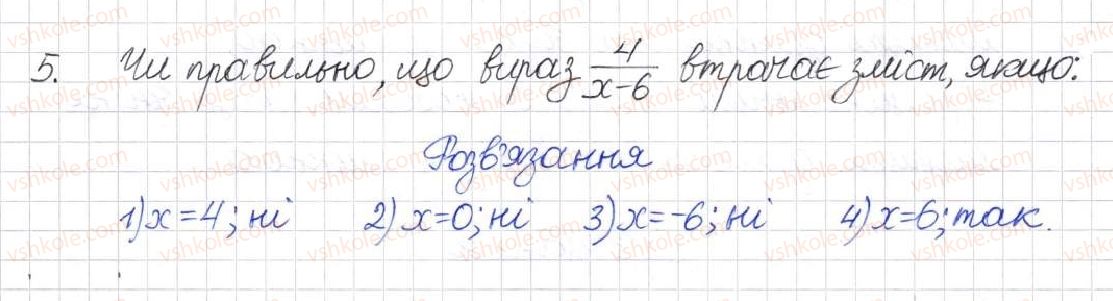 5. Чи правильно, що вираз 4/(x-6) втрачає зміст, якщо:
Розв'язання
1) x=4; ні 2) x=0; ні 3) x=-6; ні 4) x=6; так.